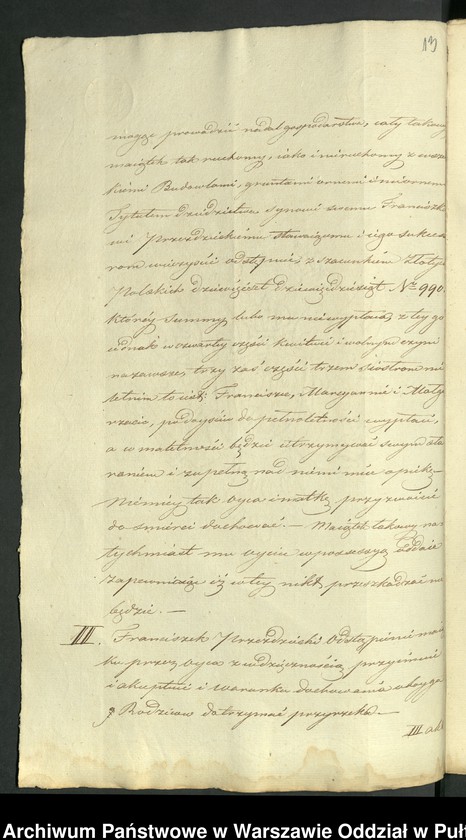 13
mogąc prowadzić nadal gospodarstwa, cały takowy
maiątek tak ruchomy, iako i nieruchomy z wszel
kiemi Budowlami, gruntami ornemi i nieornemi
Tytułem dziedzictwa synowi swemu Franciszko
wi Przezdzieckiemu stawaiącemu i iego sukceso
rom wieczyście odstępuie, z szacunkiem Złotych
Polskich dziewięćset dziewięćdziesiąt No 990.
któréy summy, lubo mu niewypłaca, z tey go
iednak w czwarty części kwituie i wolnym czyni
na zawsze, trzy zaś części trzem siostrom nie
letnim to iest: Franciszce, Maryannie i Małgo
rzacie, po doyściu do pełnoletności wypłaci,
a w małoletności będzie utrzymywać swym sta
raniem i zupełną nad niemi mieć opiekę.
Niemniey tak oyca i matkę przyzwoicie
do śmierci dochować. — Maiątek takowy na
tychmiast mu oycu w possessyą oddaie
zapewniaiąc iż w tey nikt przeszkadzać nie
będzie. —
III. Franciszek Przezdziecki odstąpienie maią
tku przez oyca z wdzięcznością przyimuie
i akceptuie i warunku dochowania oboyga
Rodziców dotrzymać przyrzeka —
III
Archiwum Państwowe w Warszawie Oddział w Puł